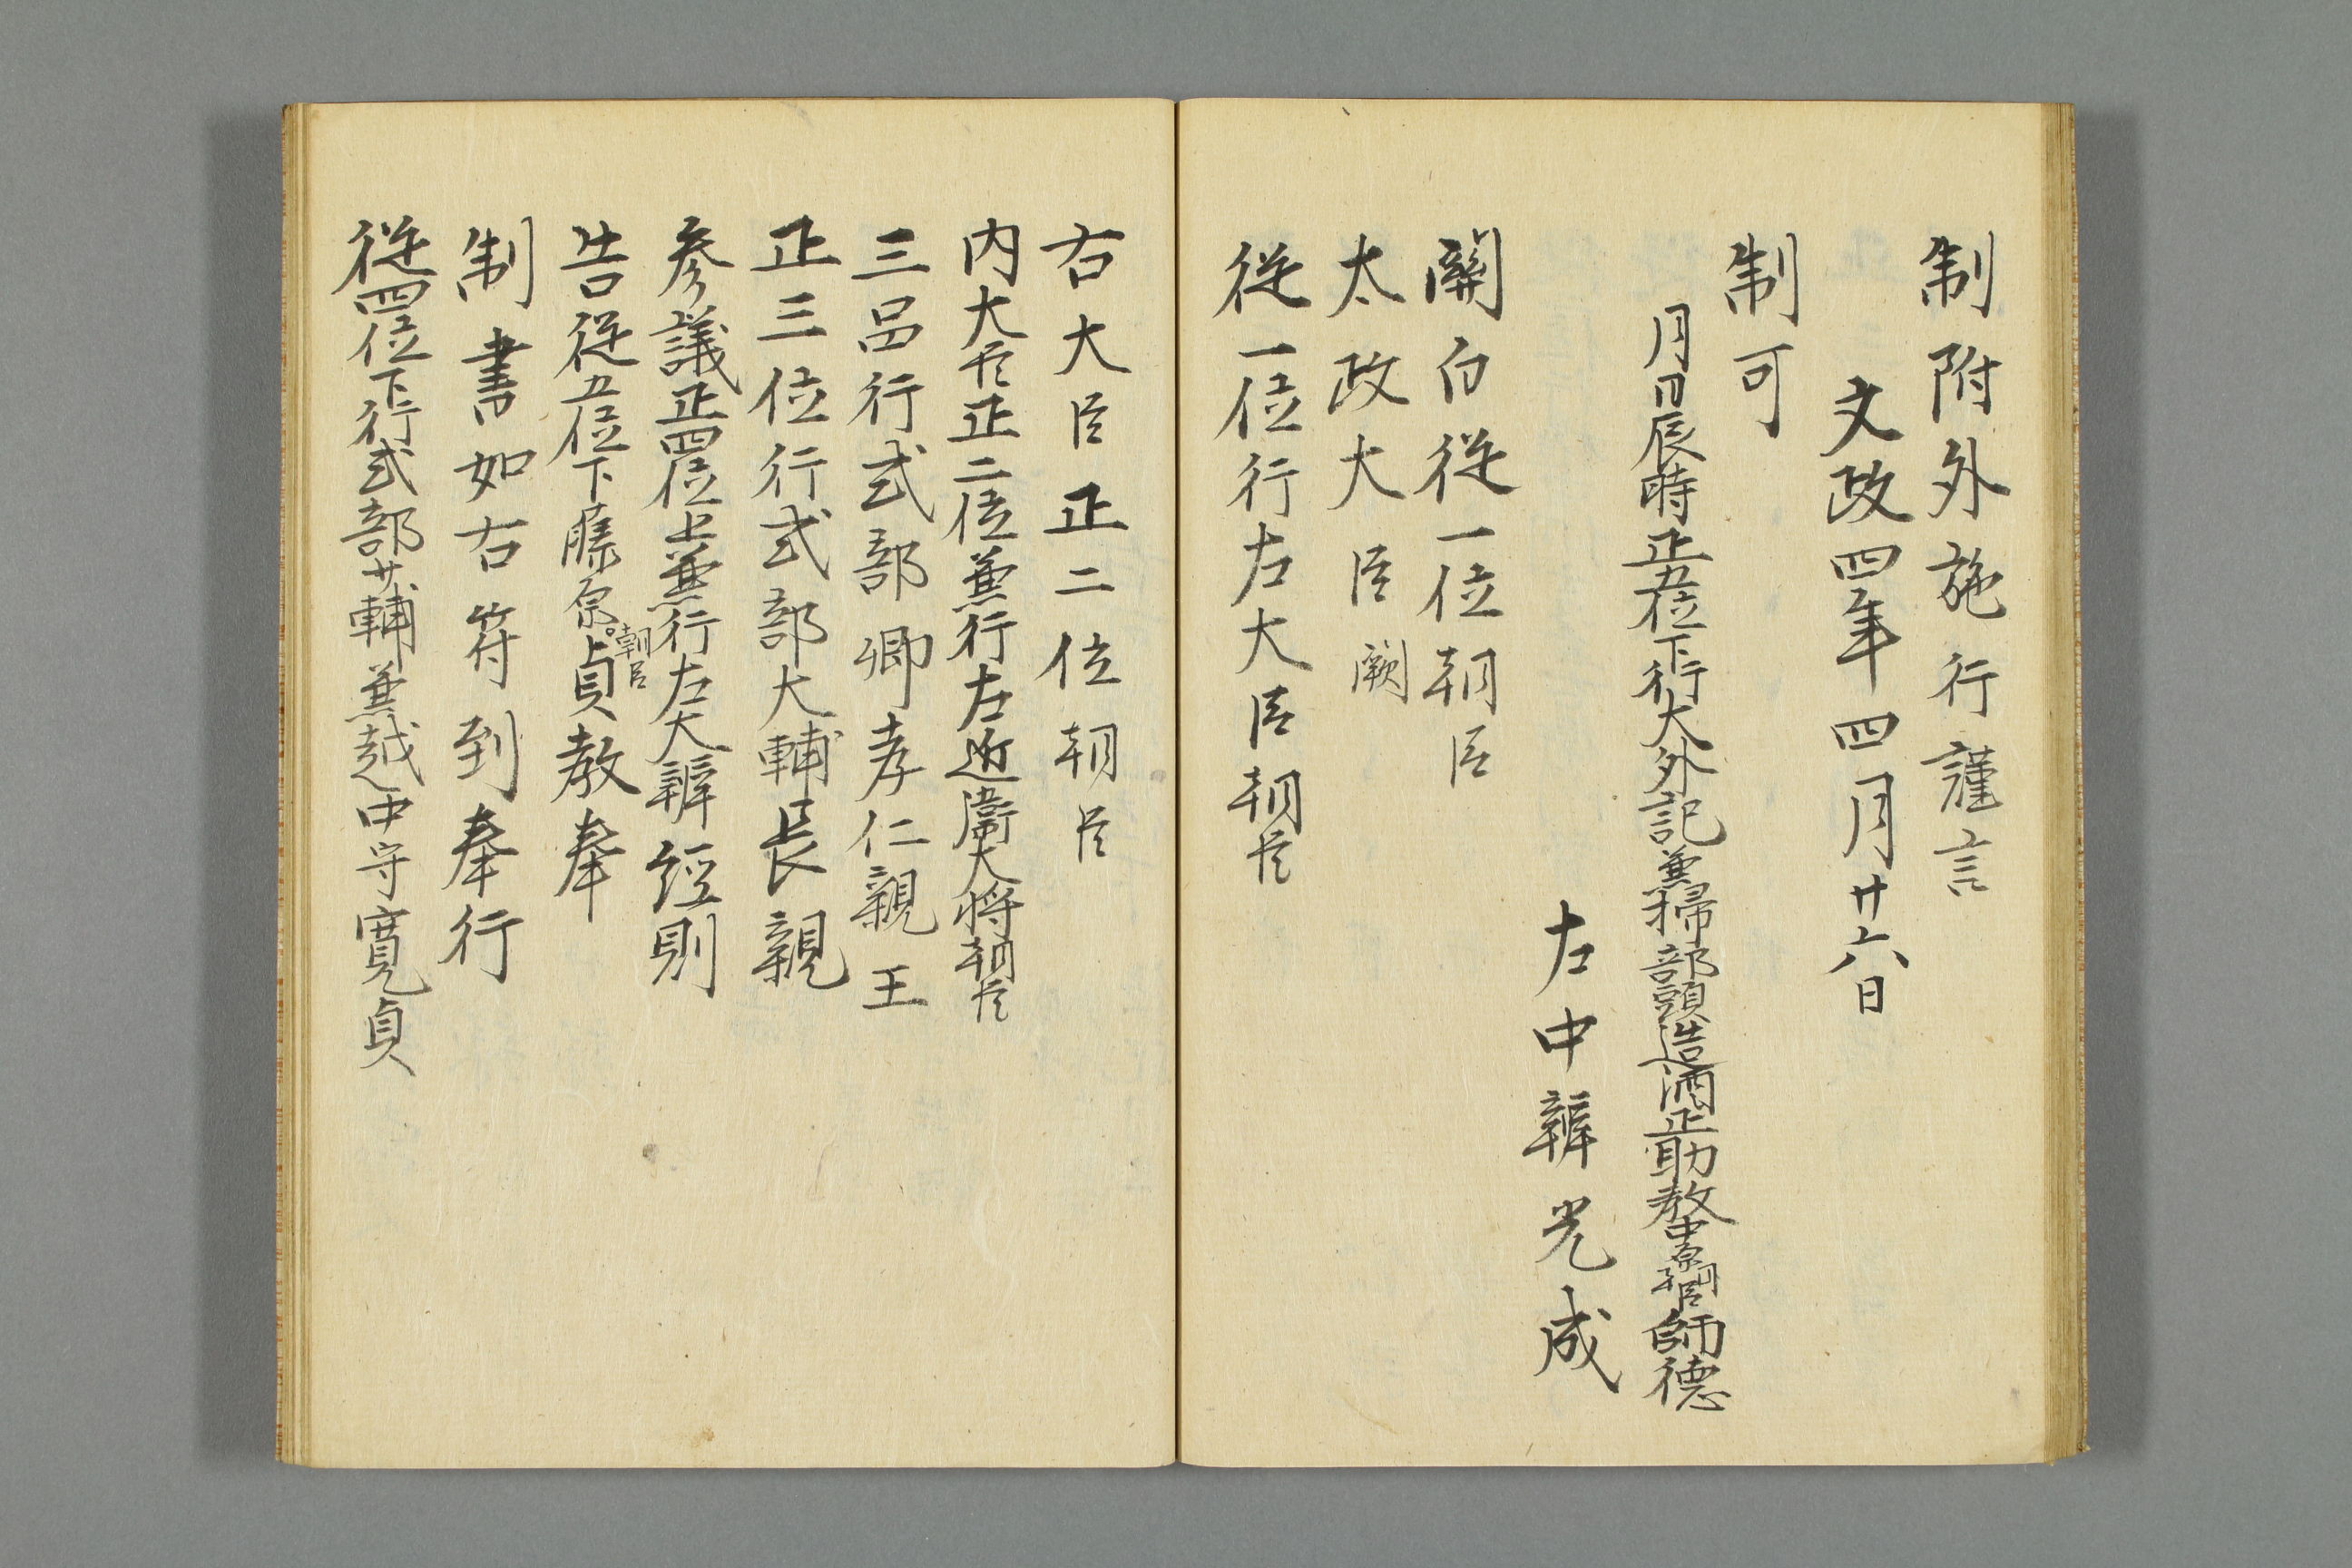 制附外施行謹言
文政四年四月廿六日
制可
月日辰時正五位下行大外記兼掃部頭造酒正助教中原朝臣師德
左中辨光成
關白從一位朝臣
太政大臣闕
從一位行左大臣朝臣
右大臣正二位朝臣
内大臣正二位兼行左近衛大将朝臣
三品行式部卿孝仁親王
正三位行式部大輔長親
参議正四位上兼行左大辨經則
告從五位下藤原朝臣貞教奉
制書如右符到奉行
從四位下行式部少輔兼越中守寛貞